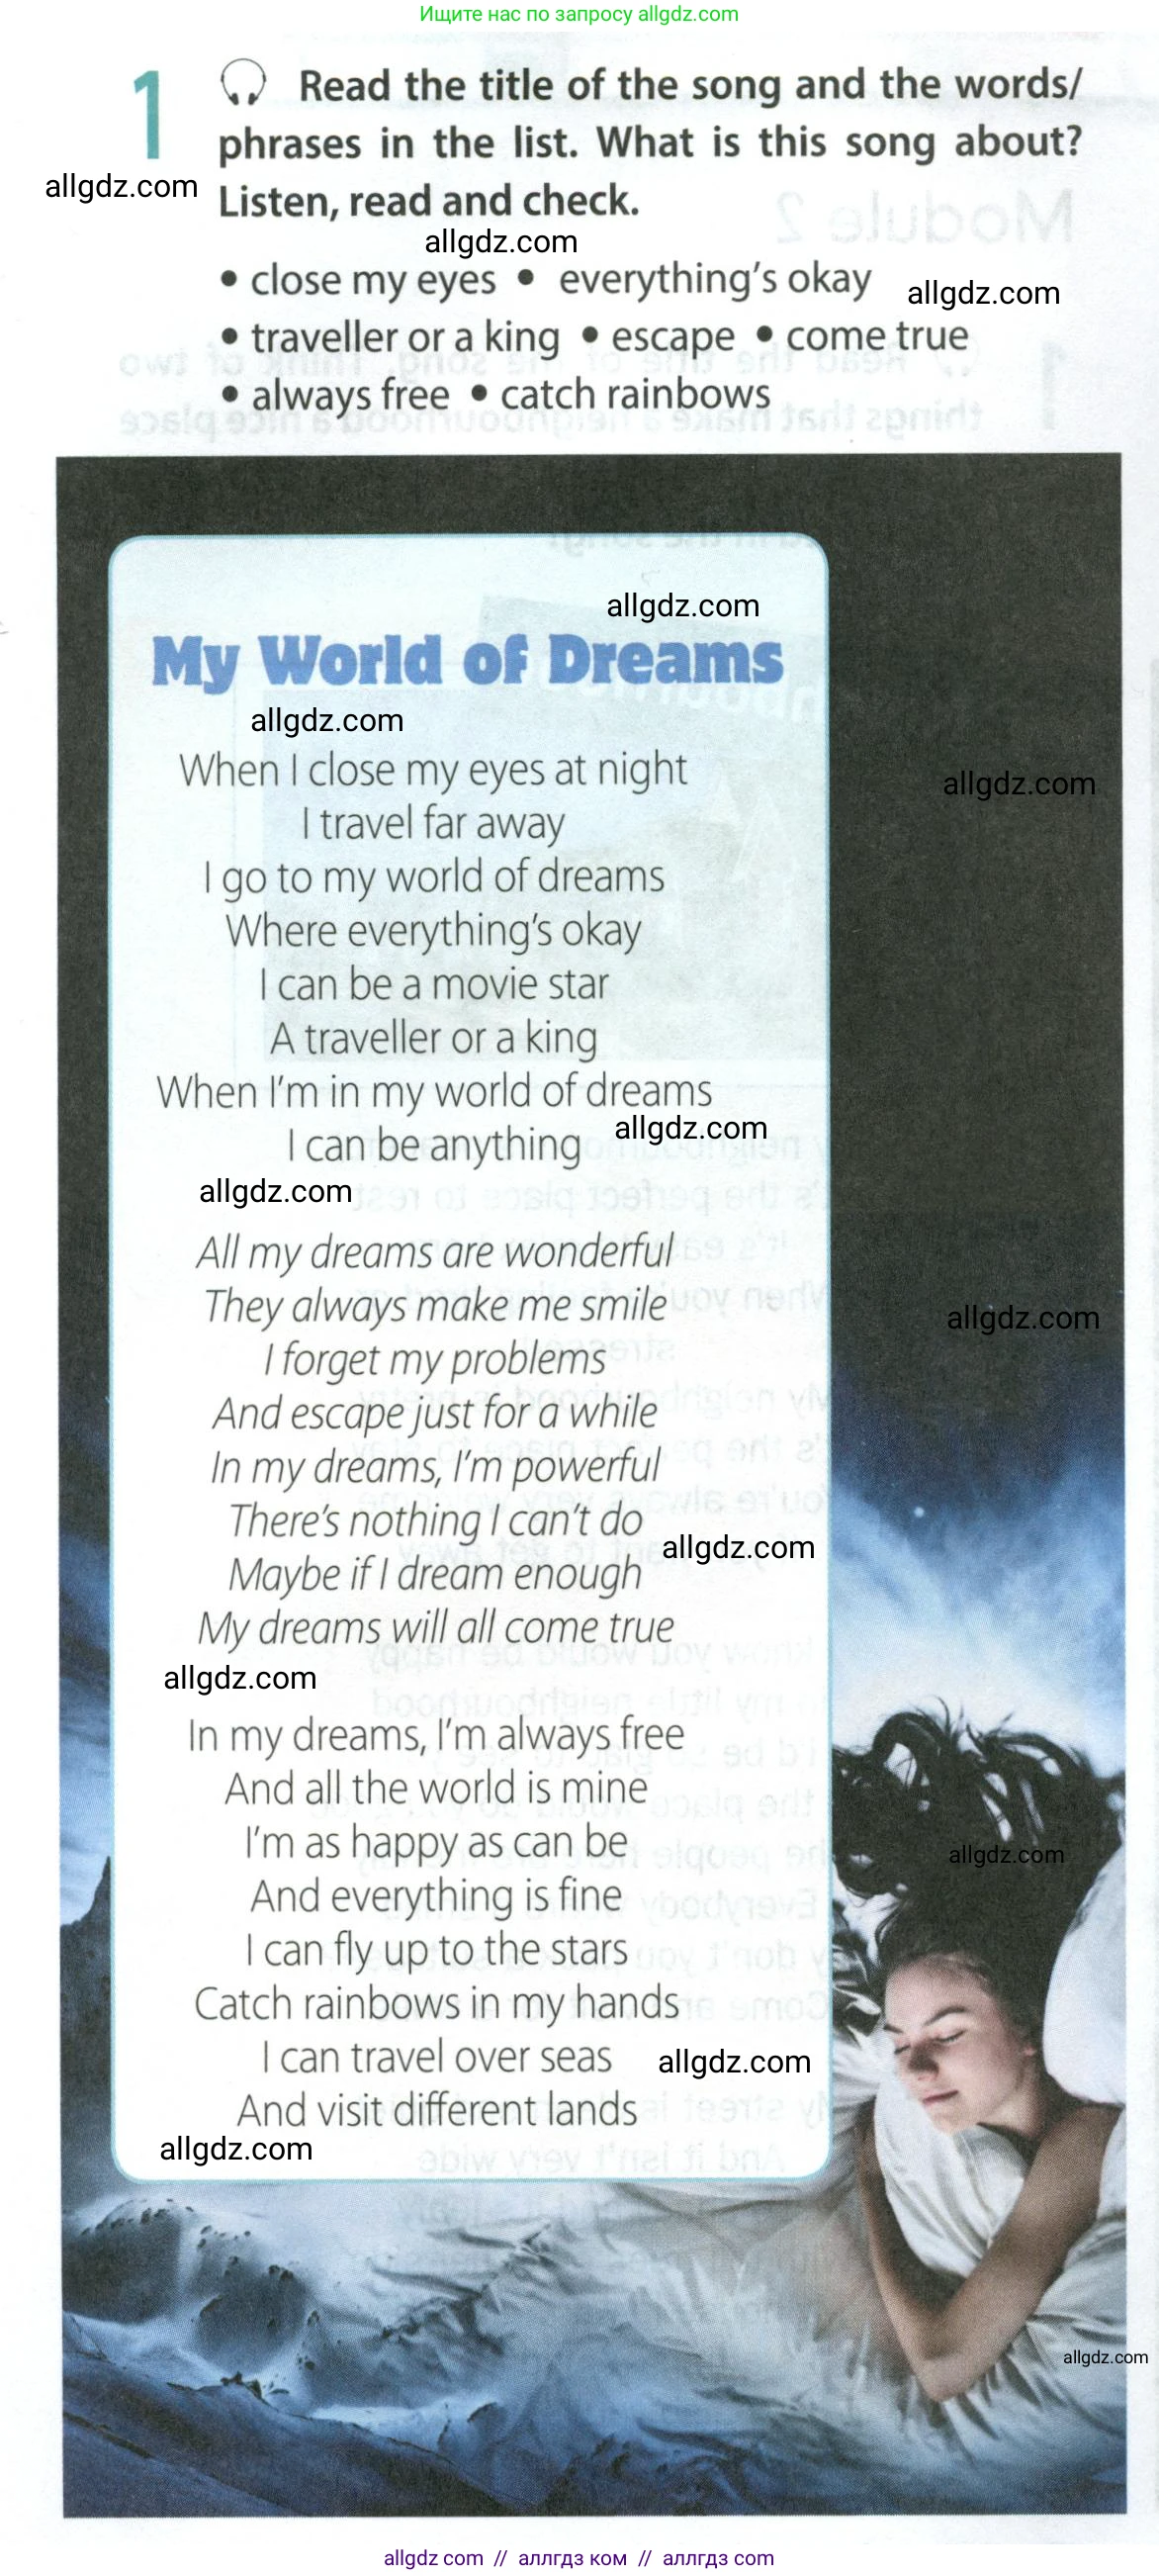 Ищите нас по запросу allgdz.com
1 Read the title of the song and the words/
phrases in the list. What is this song about?
allgdz.com
Listen, read and check.
allgdz.com
Module 2
• close my eyes • everything's okay
allgdz.com
• traveller or a king • escape • come true
• always free • catch rainbows
allgdz.com
My World of Dreams
allgdz.com
When I close my eyes at night
allgdz.com
I travel far away
I go to my world of dreams
Where everything's okay
I can be a movie star
A traveller or a king
When I'm in my world of dreams
allgdz.com
I can be anything
allgdz.com
All my dreams are wonderful
They always make me smile
allgdz.com
I forget my problems
And escape just for a while
In my dreams, I'm powerful
There's nothing I can't do
allgdz.com
Maybe if I dream enough
My dreams will all come true
allgdz.com
In my dreams, I'm always free
And all the world is mine
I'm as happy as can be
allgdz.com
And everything is fine
I can fly up to the stars
Catch rainbows in my hands
I can travel over seas
allgdz.com
And visit different lands
allgdz.com
allgdz.com
allgdz com // аллгдз ком // аллгдз com